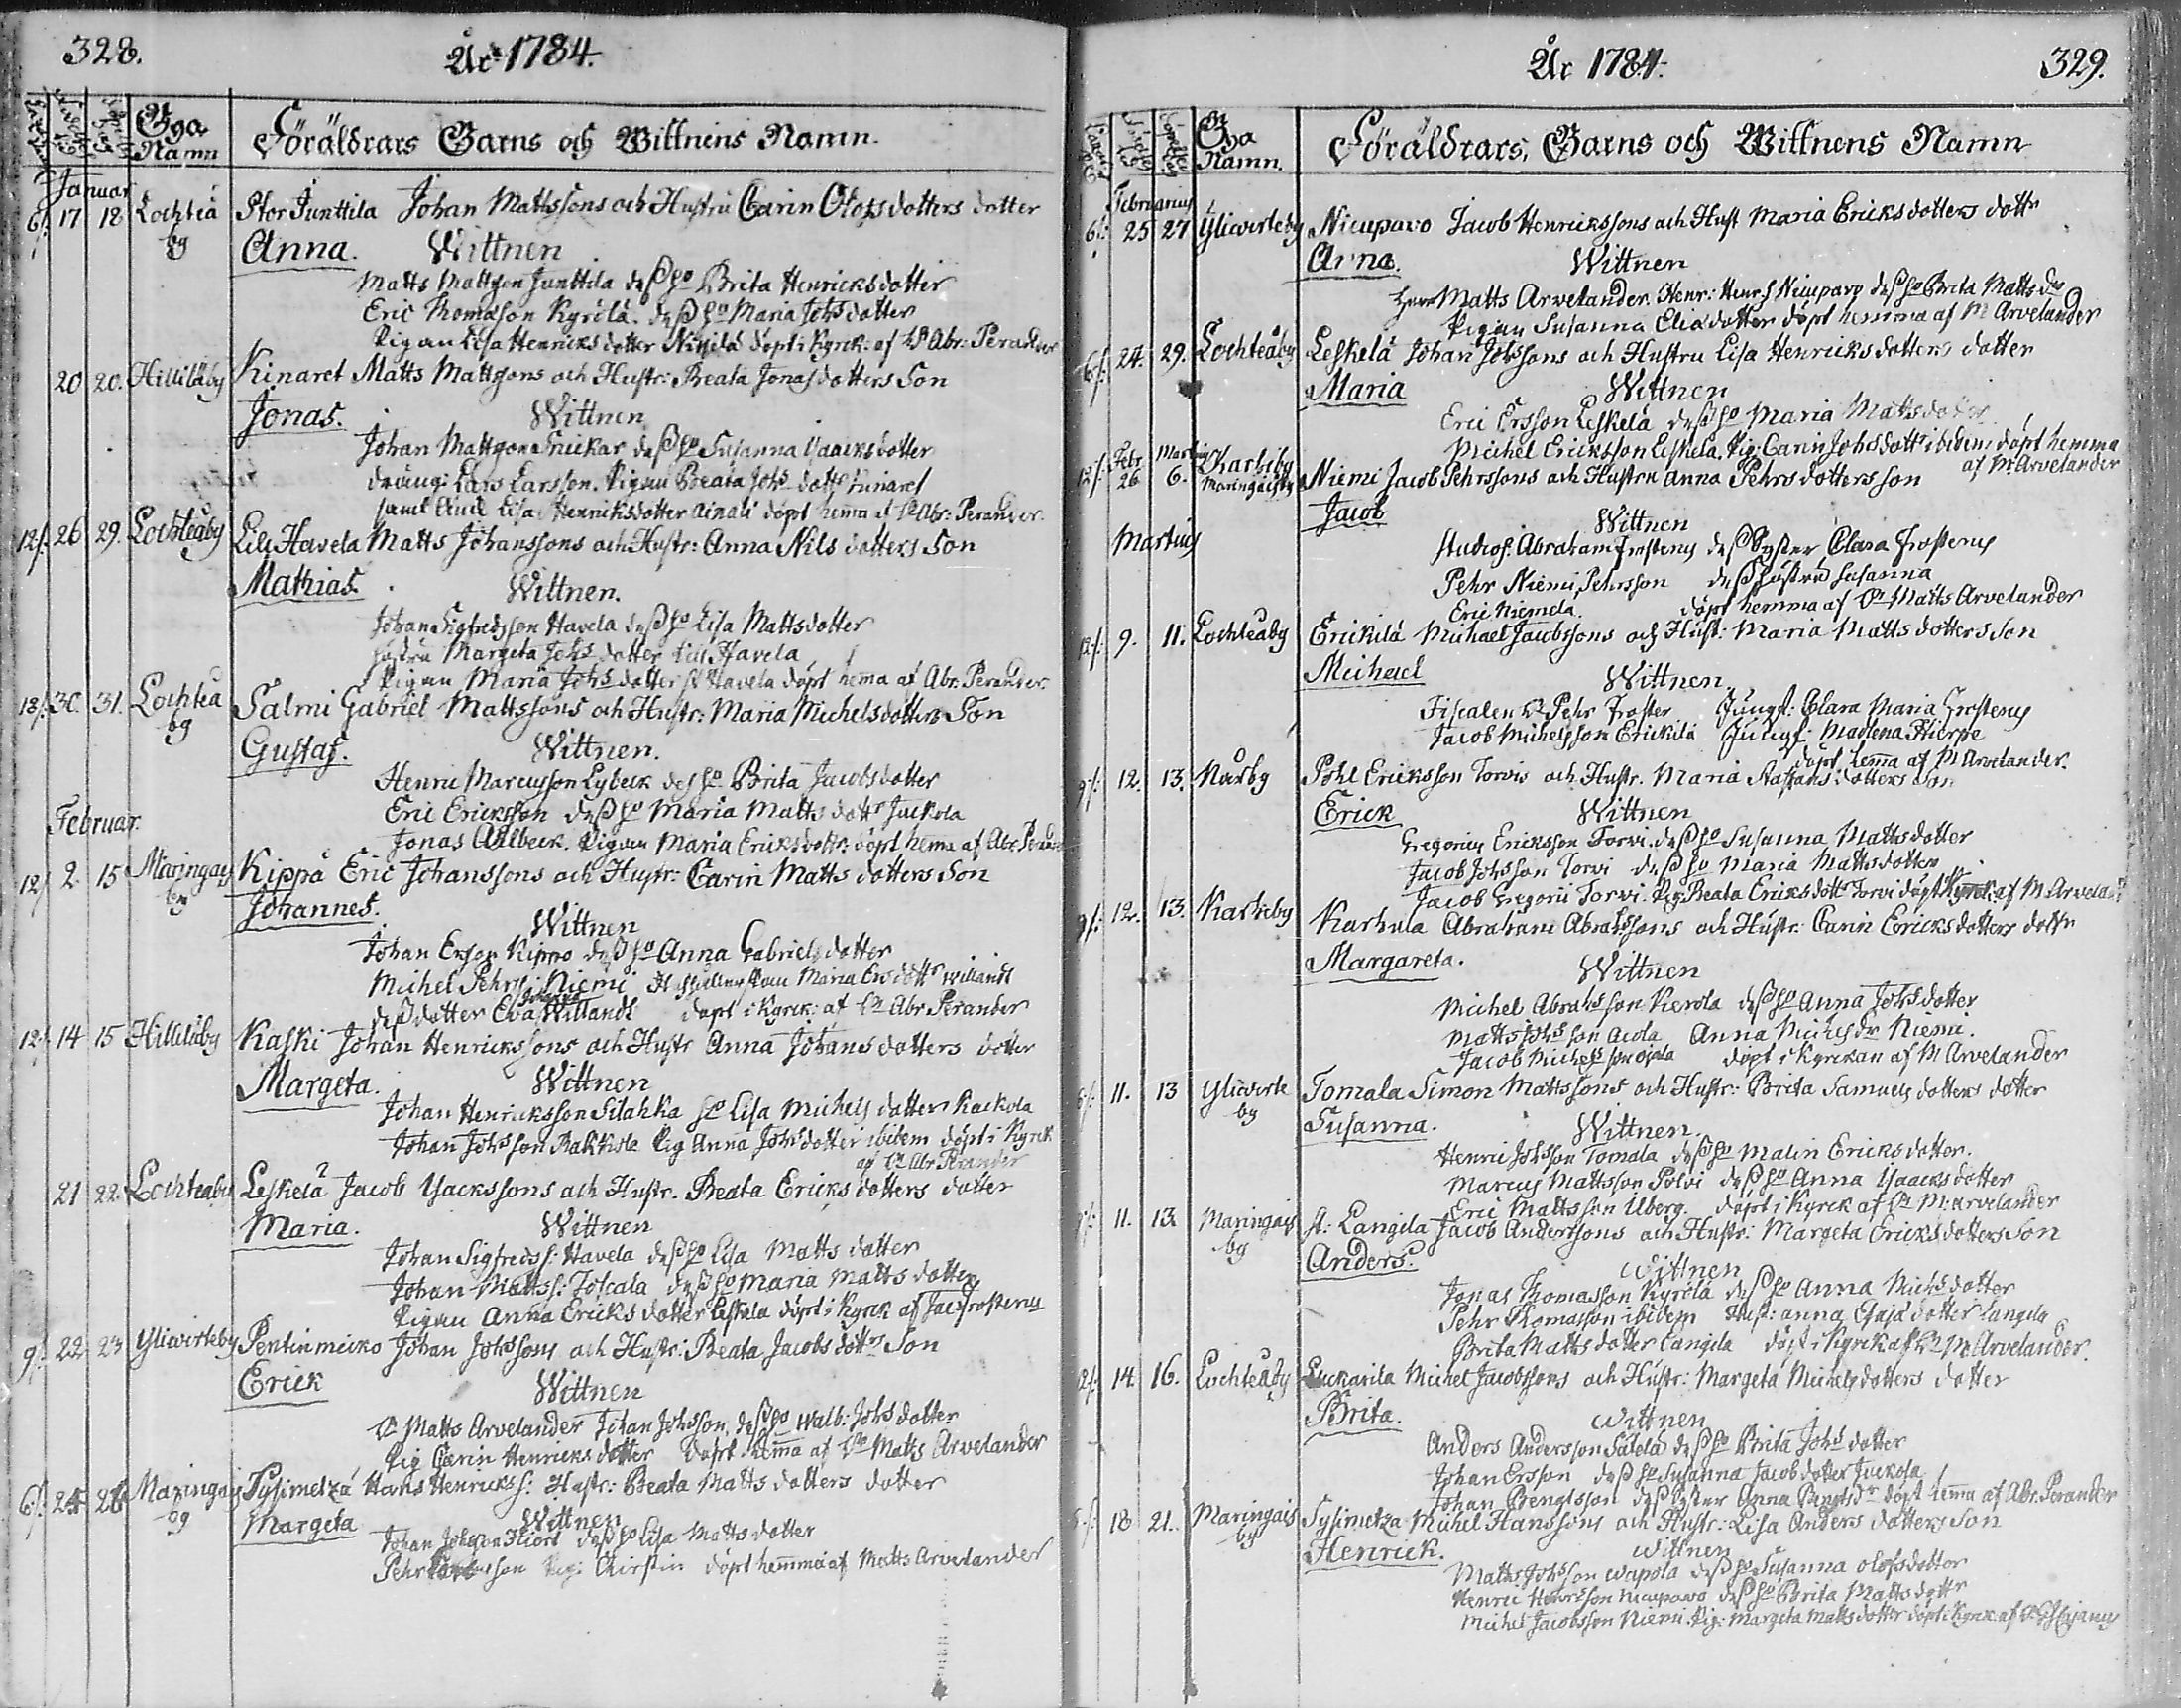 328.
År 1784.
Bya Namn
Föräldrars Barns och Wittnens Namn.
Januar
6/: 17 18 Lochteå by Stor Junttila Johan Mathssons och Hustru Carin Olofsdotters dotter
Anna. Wittnen
Matts Mattsson Junttila dess ho Brita Henricksdotter
Eric Thomasson Kyrölä. dess ho Maria Johsdotter
Pigan Lisa Henricksdotter Niskala döpt i Kyrck: af Hr Abr: Perander
20 20. Hillilä by Kinaret Matts Mattsons och Hustr: Beata Jonasdotters Son
Jonas. Wittnen
Johan Mattson Snickar dess ho Susanna Isaacksdotter
dräng: Lars Larsson. Pigan Beata Johs dottr Kinaret
samt Lisa Henricksdotter Ainali döpt hema af Hr Abr: Perander.
12/: 26 29. Lochteåby Lill Havela Matts Johanssons och Hustr: Anna Nilsdotters Son
Mathias. Wittnen.
Johan Sigfredsson Havela dess ho Lisa Mattsdotter
Hustru Margeta Johs dotter Lill Havela
Pigan Maria Johs dotter St Havela döpt hema af Abr. Perander.
18/: 30. 31. Lochteå by Salmi Gabriel Mattssons och Hustr: Maria Michelsdotters Son
Gustaf. Wittnen.
Henric Marcusson Lybeck dess ho Brita Jacobsdotter
Eric Ericksson dess ho Maria Matts dottr Juckola
Februar.
Jonas Ahlbeck. Pigan Maria Ericksdottr: döpt hema af Abr. Perand
12/ 2 15 Maringais by Kippå Eric Johanssons och Hustr: Carin Matts dotters Son
Johannes. Wittnen
Johan Ersson Kippo dess ho Anna Gabriels dotter
Michel Pehrs: Niemi Maria Ers dottr Willandt
dess dotter Eva Johanna Willandt döpt i Kyrck: af Hr Abr Perander
12/: 14 15 Hilliläby Kaski Johan Henrickssons och Hustr Anna Johansdotters dotter
Margeta. Wittnen
Johan Henricksson Silahka ho Lisa Michels dotter Kackola
Johan Johsson Rahkola Pig Anna Johsdotter ibidem döpt i Kyrck
af Hr Abr Perander
21 22. Lochteåby Leskelä Jacob Yackssons och Hustr. Beata Ericks dotters dotter
Maria. Wittnen
Johan Sigfredss: Havela dess ho Lisa Matts dotter
Johan Mattss: Toscala dess ho Maria Matts dotter
Pigan Anna Ericks dotter Leskelä döpt i Kyrck af Jac Frosterus
9/: 22 23 Yliwirteby Pentinmicko Johan Johssons och Hustr: Beata Jacobs dottrs Son
Erick Wittnen
Hr Matts Arvelander Johan Johsson, dess ho Walb: Johs dotter
Pig Carin Henricks dotter döpt hemma af Hr Matts Arvelander
6/: 25 26 Maringais by Sysimetzä Hans Henrickss: Hustr: Beata Matts dotters dotter
Margeta Wittnen
Johan Johsson Hiort dess ho Lisa Matts dotter
Pehr son Pig: Chirstin döpt hemma af Matts Arvelander
År 1784.
329.
Bya Namn.
Föräldrars, Barns och Wittnens Namn
Februarius
6/: 25 27 Yliwirteby Nicupavo Jacob Henrickssons och Hust Maria Ericks dotters dottr
Anna. Wittnen
Herr Matts Arvelander. Henr: Henr:s Nicupavo dess ho Brita Matts dr
Pigan Susanna Eliædotter döpt hemma af M Arvelander
6/: 24. 29. Lochteåby Leskelä Johan Johssons och Hustru Lisa Henricksdotters dotter
Maria Wittnen
Eric Ersson Leskelä dess ho Maria Mattsdotter
Michel Ericksson Leskelä, Pig: Carin Johsdottr ibidem, döpt hemma
af M Arvelander
12/: Febr 26 Martius 6. Karhiby Maringaisby Niemi Jacob Pehrssons och Hustru Anna Pehrs dotters son
Jacob Wittnen
Martius
studios: Abraham Frosterus dess Syster Clara Frosterus
Pehr Niemi, Pehrsson dess hustru Susanna
Eric Niemelä döpt hemma af Hr Matts Arvelander
12/: 9. 11. Lochteåby Erickilä Michael Jacobssons och Hust: Maria Mattsdotters Son
Michael Wittnen
Fiscalen Hr Pehr Froster Jungf: Clara Maria Frosterus
Jacob Michelsson Erickilä Jungf: Madlena Hierpe
döpt hema af M Arvelander.
9/: 12. 13. Nårby Påhl Ericksson Torvis och Hustr. Maria Staffansdotters Son
Erick Wittnen
Gregorius Ericksson Torvi. dess ho Susanna Mattsdotter
Jacob Johsson Torvi dess ho Maria Mattsdotter
Jacob Gregorii Torvi. Pig Beata Ericksdottr Torvi döpt i Kyrck: af M Arveland
9/: 12. 13. Karhiby Karhula Abraham Abrahssons och Hustr: Carin Ericksdotters dottr
Margareta. Wittnen
Michel Abrahsson Kierola dess ho Anna Johsdotter
Matts Johsson Anna Michelsdr Niemi.
Jacob Michelsson döpt i Kyrckan af M Arvelander
6/: 11. 13 Yliwirte by Tomala Simon Mattssons och Hustr: Brita Samuels dotters dotter
Susanna. Wittnen.
Henric Johsson Tomala dess ho Malin Ericksdotter.
Marcus Mattsson Polvi dess ho Anna Ysaacksdotter
Eric Mattsson Uberg. döpt i Kyrck af Hr M: Arvelander
11. 13. Maringais by st: Langila Jacob Anderssons och Hustr: Margeta Ericksdotters Son
Anders. Wittnen
Jonas Thomasson Kyrölä dess ho Anna Michs dotter
Pehr Thomasson ibidem Hust: anna Esaiædotter Langila
Brita Matts dotter Langila döpt i Kyrck af Hr M Arvelander.
12/: 14. 16. Lochteåby Luckarila Michel Jacobssons och Hustr: Margeta Michelsdotters dotter
Brita. Wittnen
Anders Andersson Säldä dess ho Brita Johs dotter
Johan Ersson dess ho Susanna Jacobdotter Juckola
Johan Bengtsson dess Syster Anna Bengtsdr döpt hema af Abr. Perander
18 21. Maringais by Sysimetza Michel Hanssons och Hustr: Lisa Anders dotters son
Henrick. Wittnen
Matts Johsson Wapola dess ho Susanna Olofsdotter
Henric Henrsson Nicupavo dess ho Brita Mattsdottr
Michel Jacobsson Niemi. Pig: Margeta Matts dotter döpt i Kyrck: af